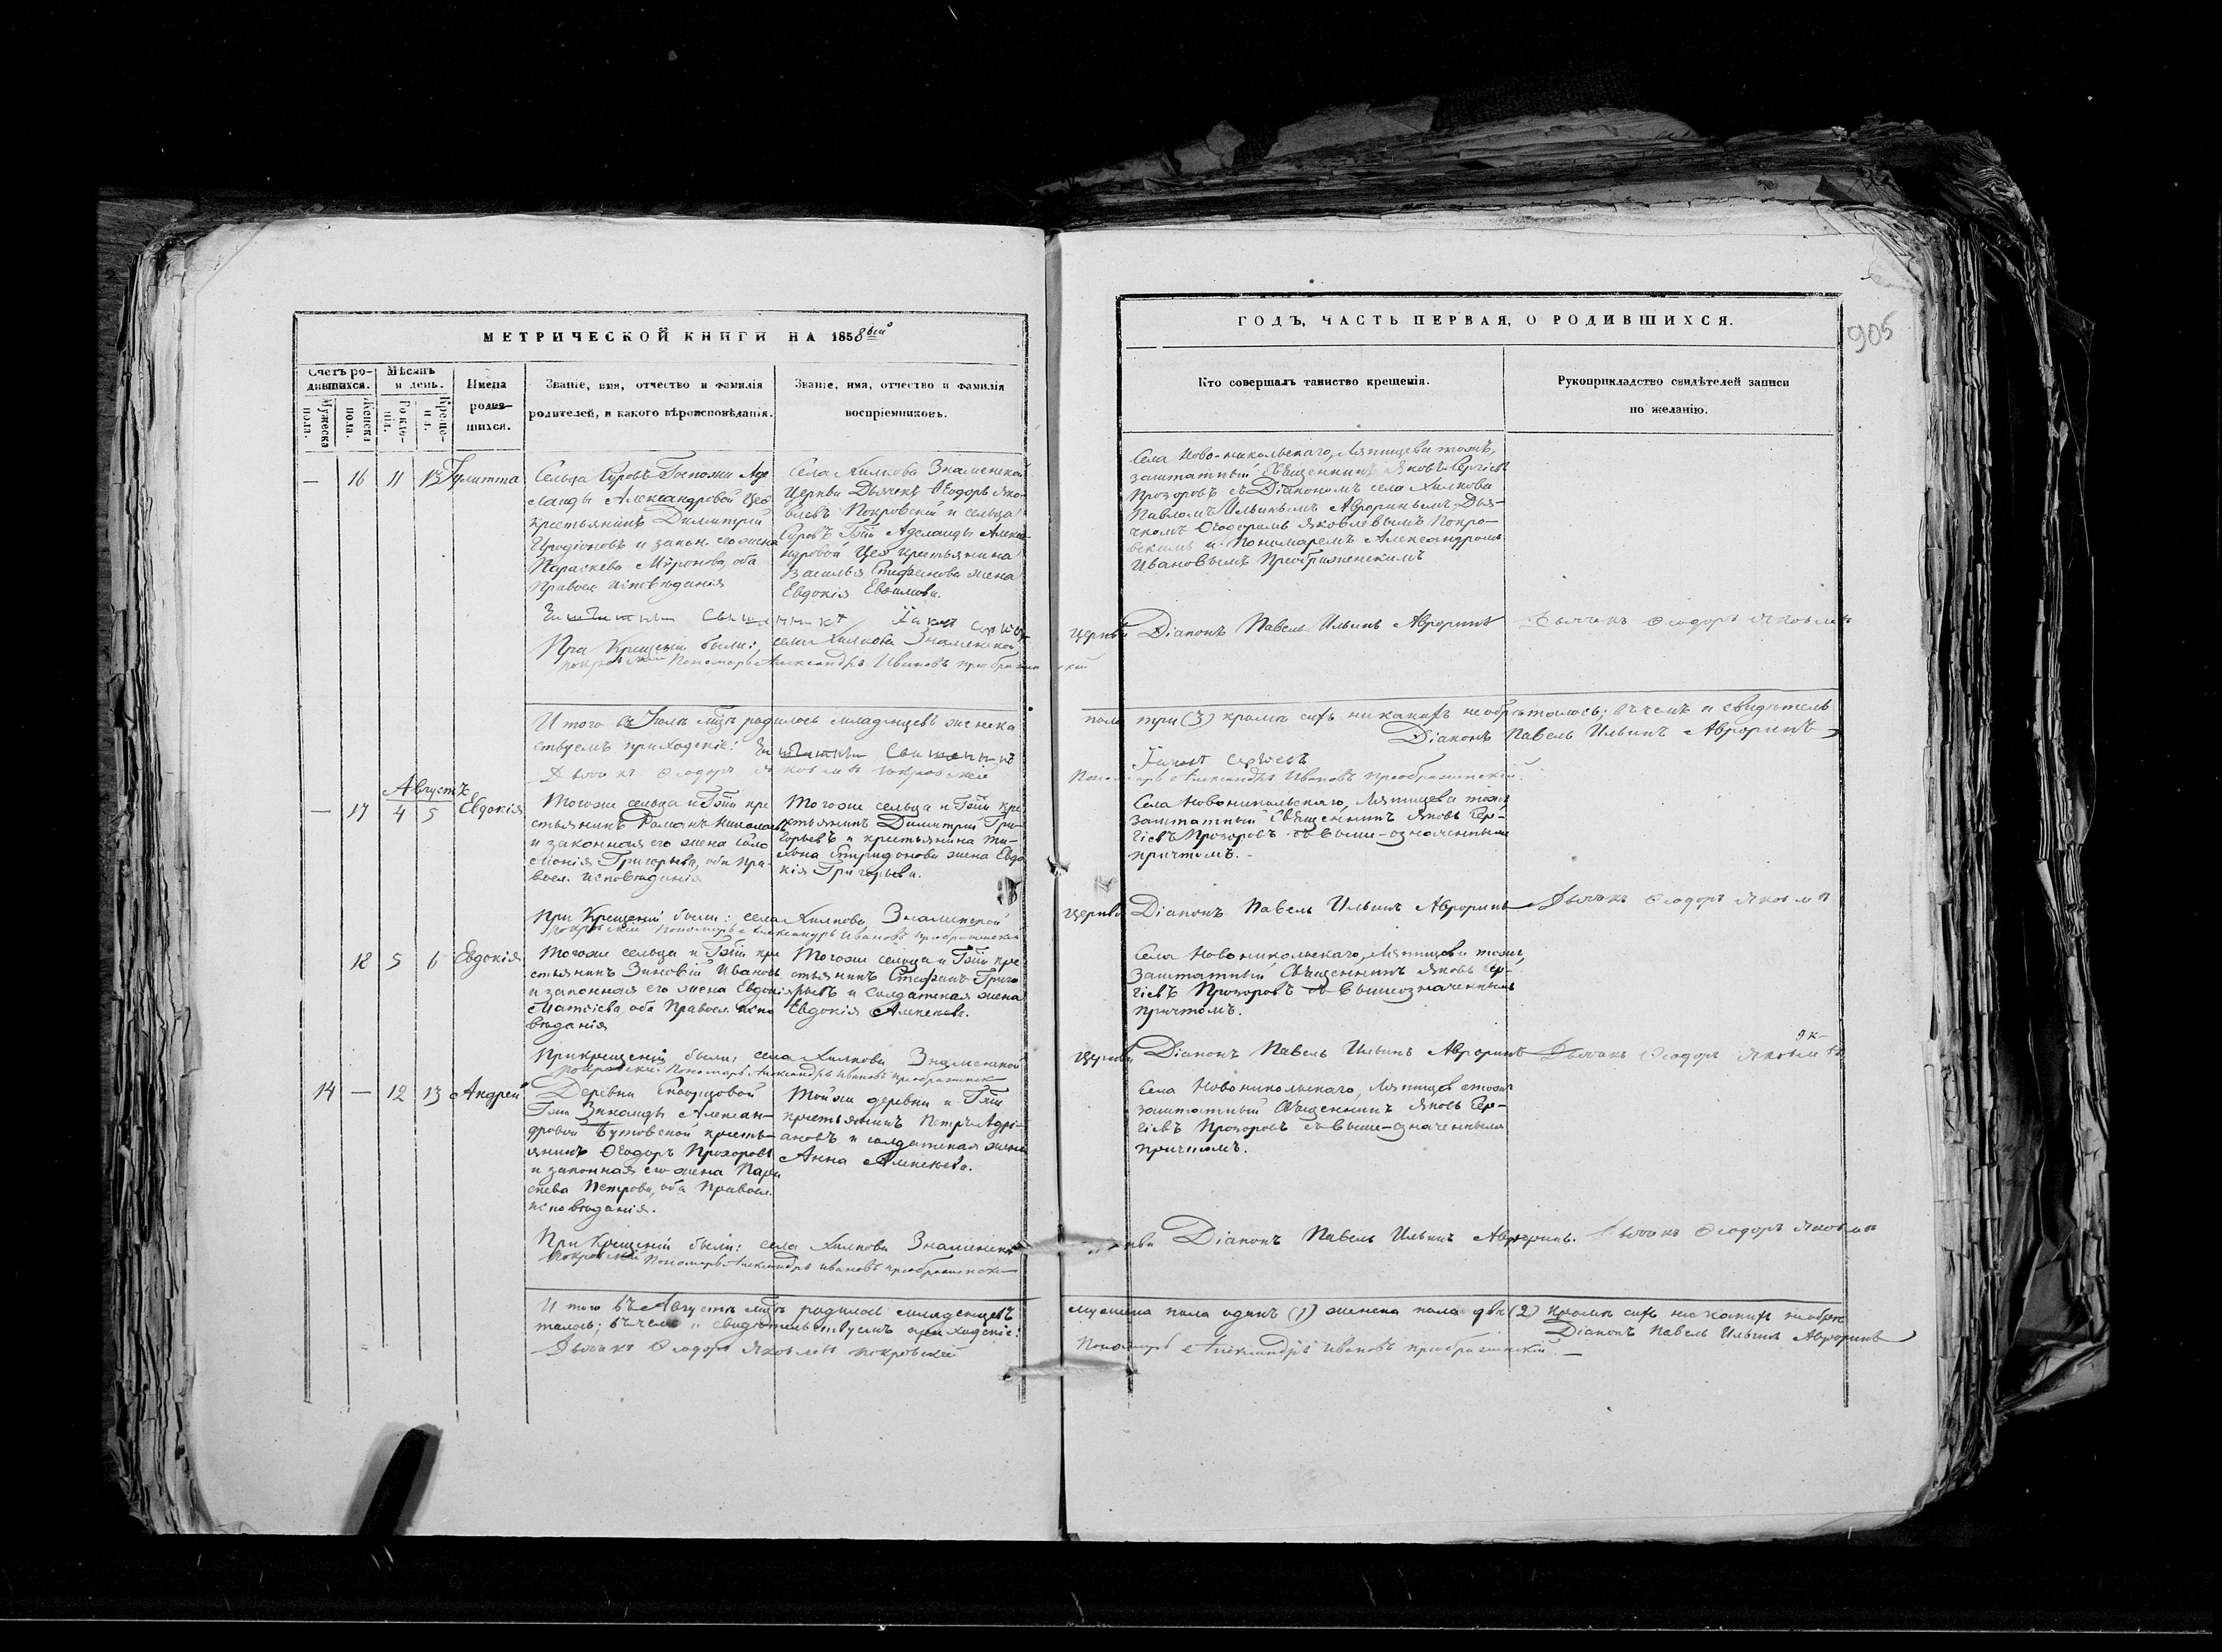 МЕТРИЧЕСКОЙ КНИГИ НА 1858 й
Счетъ ро-
дившихся.
Мужеска
пола.
Женска
пола.
Мѣсяцъ
и день.
Рожде-
нія.
Креще-
нія.
Имена
родив-
шихся.
Званіе, имя, отчество и фамилія
родителей, и какого вѣроисповѣданія.
Званіе, имя, отчество и фамилія
воспріемниковъ.
— 16 11 13 Іулитта
Сельца Суровъ Госпожи Аде
лаиды Александровой Цеэ
крестьянинъ Димитрій
Иродіоновъ и закон. его жена
Параскева Миронова, оба
Правосл. исповѣданія
Села Хилкова Знаменской
Церкви Дьячекъ Ѳеодоръ Яко-
влевъ Покровскій и сельца
Суровъ Гжи Аделаиды Алекса
ндровой Цеэ крестьянина
Василья Стефанова жена
Евдокія Евѳимова.
Священникъ Іаковъ Сергіевъ
При Крещеніи были: села Хилкова Знаменской
Покровскій Пономарь Александръ Ивановъ Преображен
Итого въ Іюлѣ мцѣ родилось младенцевъ женска
ствуемъ приходскіе: Священникъ
Дьячекъ Ѳеодоръ Яковлевъ Покровскій
Августъ
— 17 4 5 Евдокія
Тогоже сельца и Гжи кре
стьянинъ Романъ Николаевъ
и законная его жена Соло
монія Григорьева, оба Пра-
восл. исповѣданія
Тогоже сельца и Гжи кре
стьянинъ Димитрій Гри-
горьевъ и крестьянина Ти-
хона Спиридонова жена Евдо
кія Григорьева.
При Крещеніи были: села Хилкова Знаменской
Покровскій Пономарь Александръ Ивановъ Преображенскій
18 5 6 Евдокія
Тогоже сельца и Гжи кре
стьянинъ Зиновій Ивановъ
и законная его жена Евдокія
Матѳіева, оба Правосл. испо
вѣданія
Тогоже сельца и Гжи кре
стьянинъ Стефанъ Григо
рьевъ и Солдатская жена
Евдокія Алексѣева.
При крещеніи были: села Хилкова Знаменской
Покровскій Пономарь Александръ Ивановъ Преображенск
14 — 12 13 Андрей
Деревни Скворцовой
Гжи Зинаиды Алексан-
дровой Бутовской кресть-
янинъ Ѳеодоръ Прохоровъ
и законная его жена Пара
скева Петрова, оба Правосл.
исповѣданія.
Тойже деревни и Гжи
крестьянинъ Петръ Адрі-
ановъ и солдатская жена
Анна Алексѣева.
При Крещеніи были: села Хилкова Знаменско
Покровскій Пономарь Александръ Ивановъ Преображенск
Итого въ Августѣ мцѣ родилось младенцевъ
талось; въ чемъ и свидѣтельствуемъ приходскіе:
Дьячекъ Ѳеодоръ Яковлевъ Покровскій
ГОДЪ, ЧАСТЬ ПЕРВАЯ, О РОДИВШИХСЯ.
905
Кто совершалъ таинство крещенія.
Рукоприкладство свидѣтелей записи
по желанію.
Села Ново-никольскаго, Мятищева тожъ,
заштатный Священникъ Яковъ Сергіевъ
Прозоровъ съ Діакономъ села Хилкова
Павломъ Ильинымъ Авроринымъ, Дья-
чкомъ Ѳеодоромъ Яковлевымъ Покро-
вскимъ и Пономаремъ Александромъ
Ивановымъ Преображенскимъ
церкви Діаконъ Павелъ Ильинъ Авроринъ Дьячекъ Ѳеодоръ Яковлевъ
скій
пола три (3) кромѣ сихъ никакихъ необрѣталось; въ чемъ и свидѣтель
Діаконъ Павелъ Ильинъ Авроринъ
Іаковъ Сергіевъ
Пономарь Александръ Ивановъ Преображенскій.
Села Новоникольскаго, Мятищева тожъ
заштатный Священникъ Яковъ Сер-
гіевъ Прозоровъ съ выше-означеннымъ
причтомъ.
Церкви Діаконъ Павелъ Ильинъ Авроринъ Дьячекъ Ѳеодоръ Яковлевъ
Села Новоникольскаго, Мятищева тожъ,
заштатный Священникъ Яковъ Сер-
гіевъ Прозоровъ съ вышеозначеннымъ
причтомъ.
Церкви Діаконъ Павелъ Ильинъ Авроринъ Дьячекъ Ѳеодоръ Яковлевъ
Села Новоникольскаго, Мятищева тожъ
заштатный Священникъ Яковъ Сер-
гіевъ Прозоровъ съ выше-означеннымъ
причтомъ.
Діаконъ Павелъ Ильинъ Авроринъ. Дьячекъ Ѳеодоръ Яковлевъ
мужеска пола одинъ (1) женска пола двѣ (2) кромѣ сихъ никакихъ необрѣ
Діаконъ Павелъ Ильинъ Авроринъ
Пономарь Александръ Ивановъ Преображенскій.